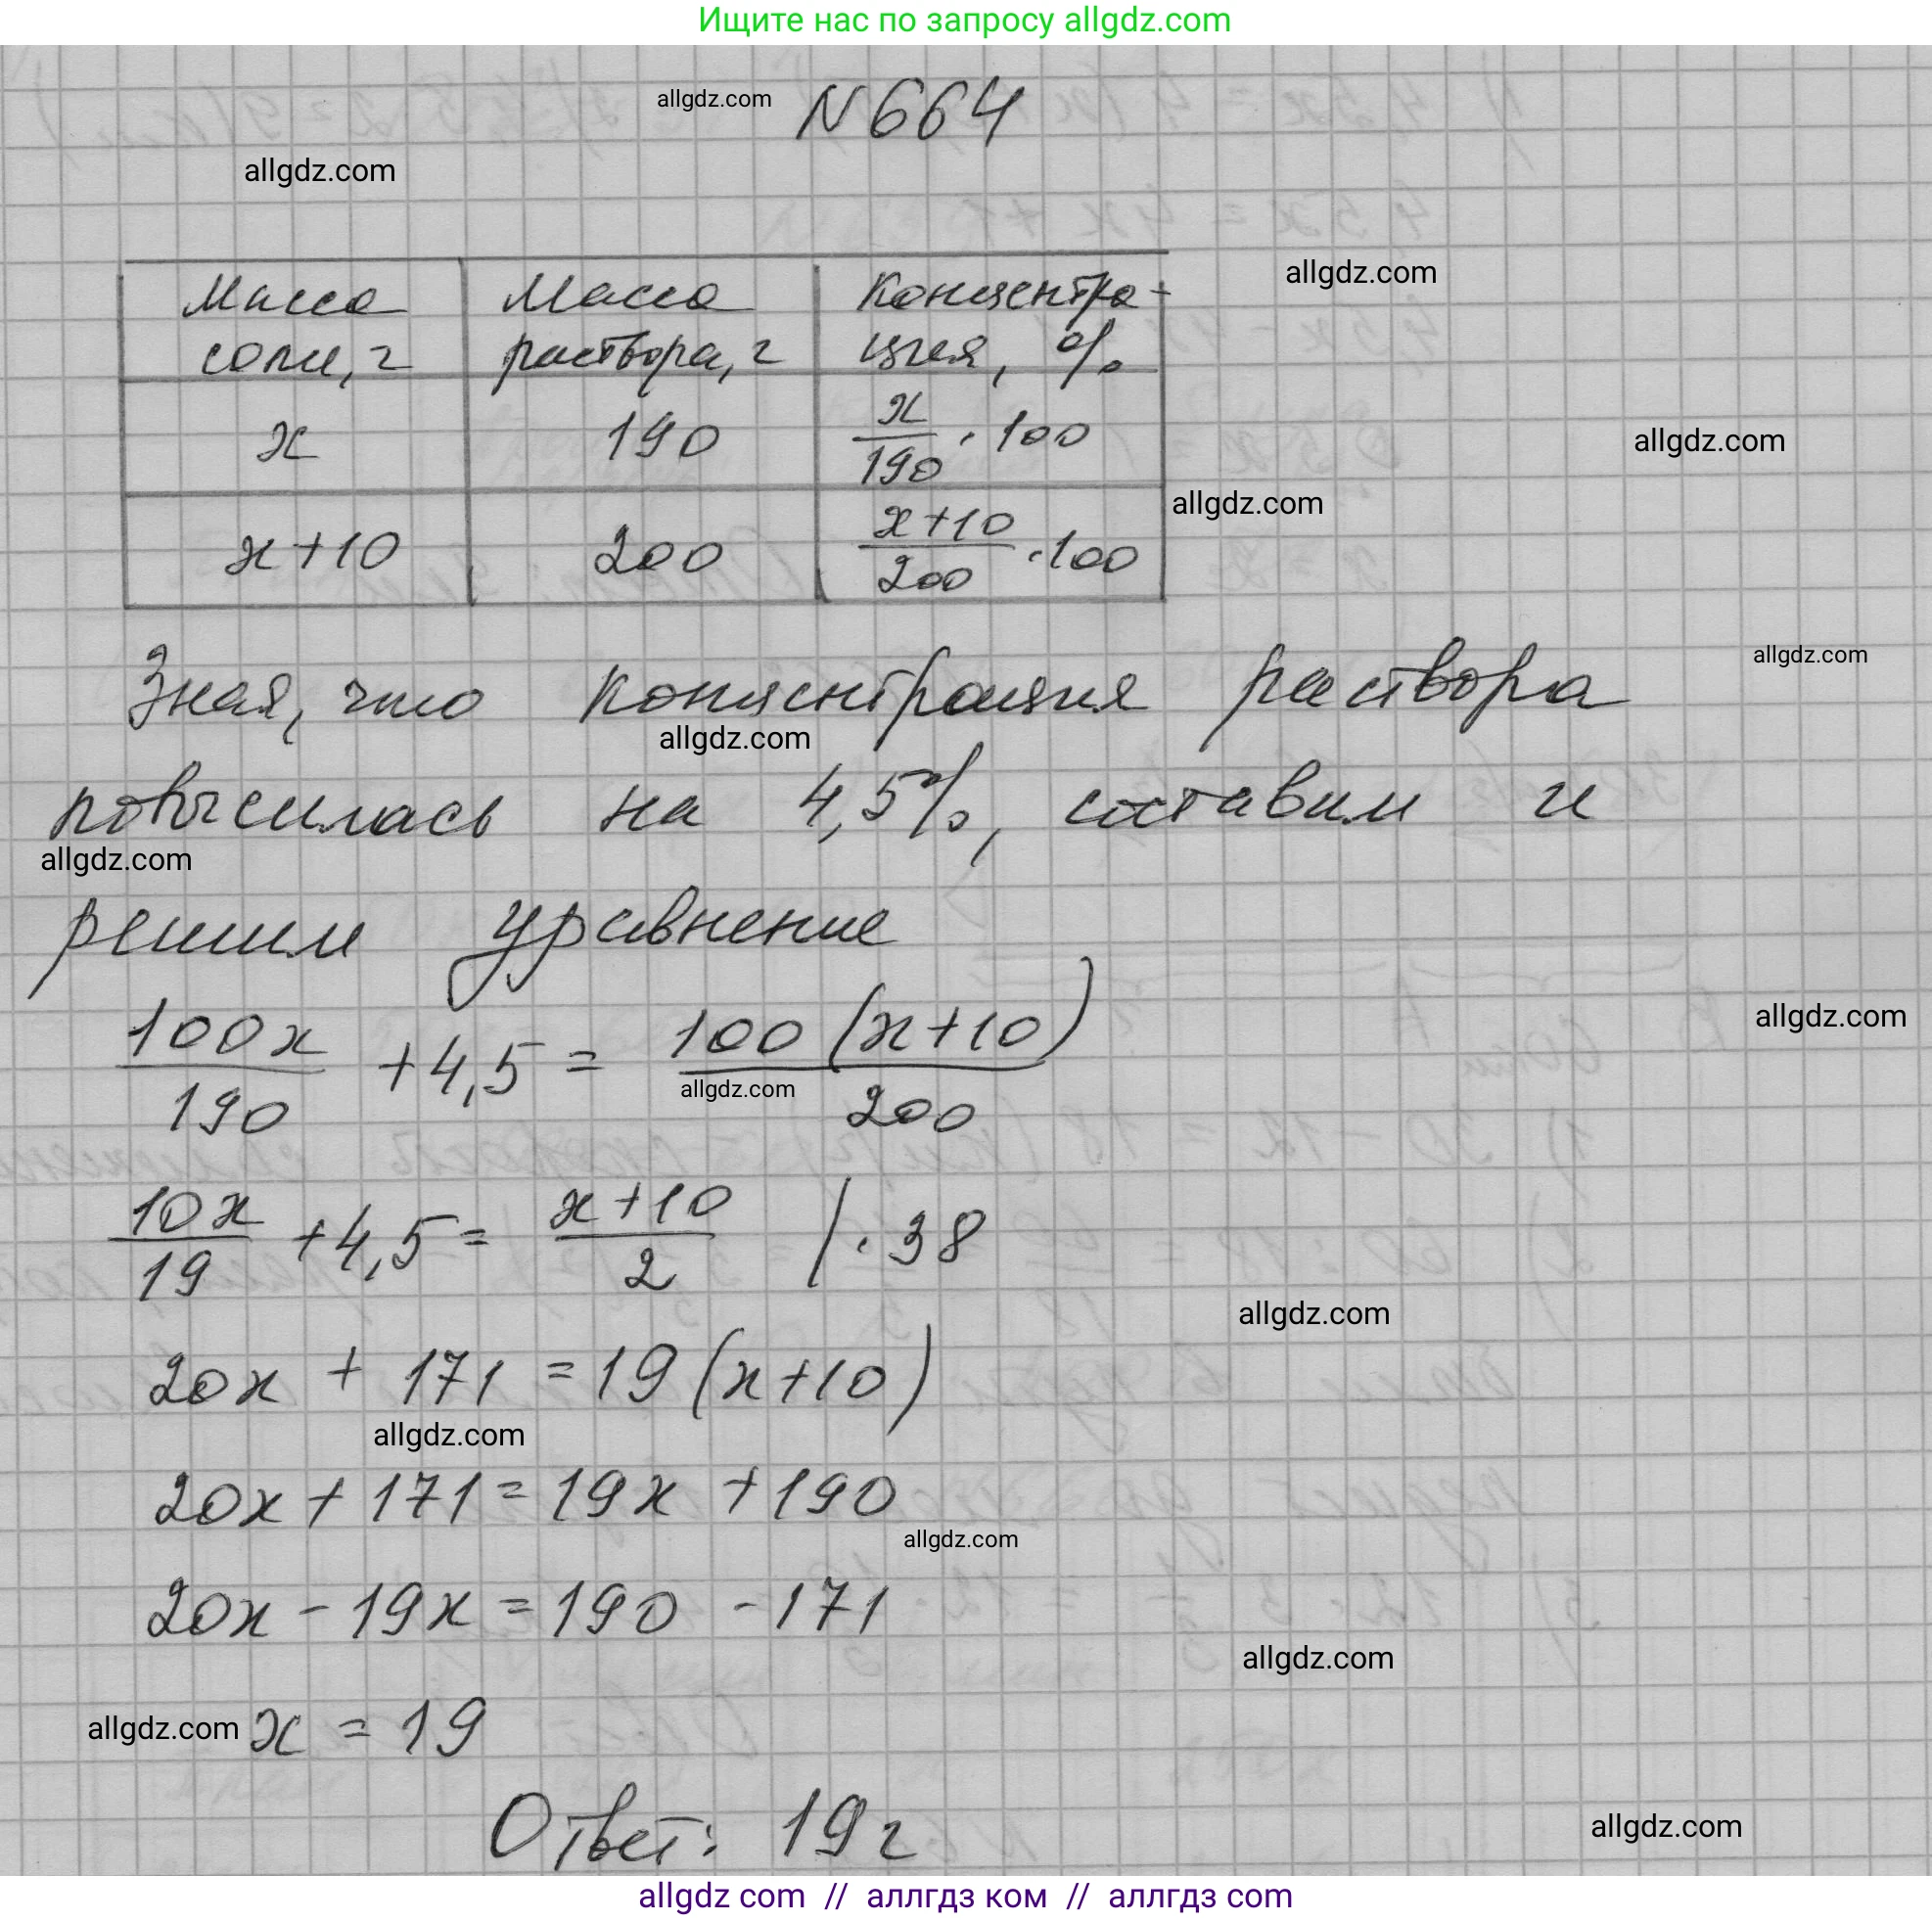 Ищите нас по запросу allgdz.com
allgdz.com N 664
allgdz.com
Масса Масса Концентра-
соли, г раствора, г ция, %
allgdz.com
x 190 x/190 · 100
allgdz.com
allgdz.com
x+10 200 (x+10)/200 · 100
allgdz.com
Зная, что концентрация раствора
allgdz.com
повысилась на 4,5%, составим и
allgdz.com
решим уравнение
100x/190 + 4,5 = 100(x+10)/200
allgdz.com
allgdz.com
10x/19 + 4,5 = (x+10)/2 | · 38
allgdz.com
20x + 171 = 19(x+10)
allgdz.com
20x + 171 = 19x + 190
allgdz.com
20x - 19x = 190 - 171
allgdz.com
allgdz.com x = 19
Ответ: 19 г
allgdz.com
allgdz com // аллгдз ком // аллгдз com